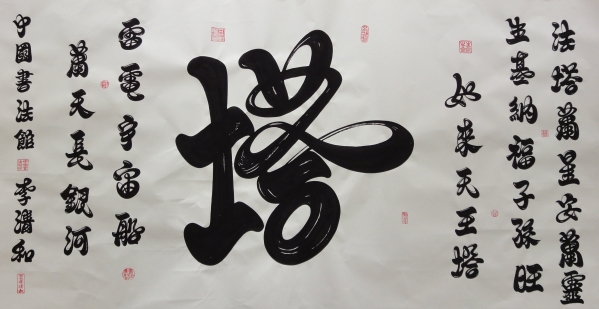 法塔萬星安萬靈
生基納福子孫旺
如來天王塔
塔
雷電宇宙船
萬天長銀河
中國書法館